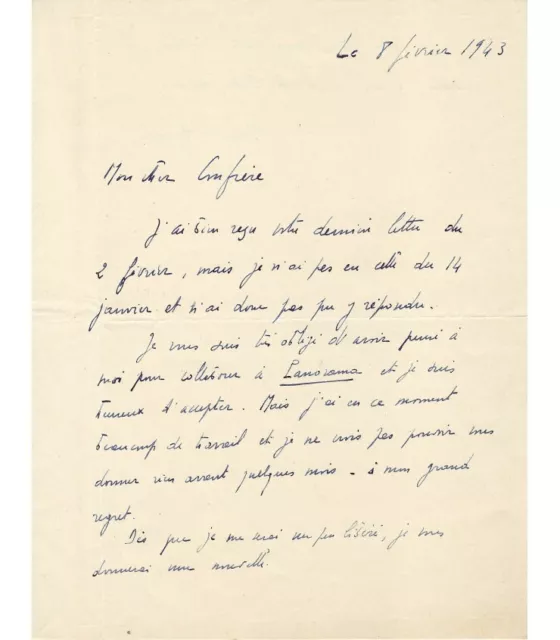 Le 8 février 1943
Mon cher Confrère
J'ai bien reçu votre dernière lettre du
2 février, mais je n'ai pas eu celle du 14
janvier et n'ai donc pas pu y répondre.
Je vous suis très obligé d'avoir pensé à
moi pour collaborer à Panorama et je suis
heureux d'accepter. Mais j'ai en ce moment
beaucoup de travail et je ne crois pas pouvoir vous
donner rien avant quelques mois - à mon grand
regret.
Dès que je me serai un peu libéré, je vous
donnerai une nouvelle.